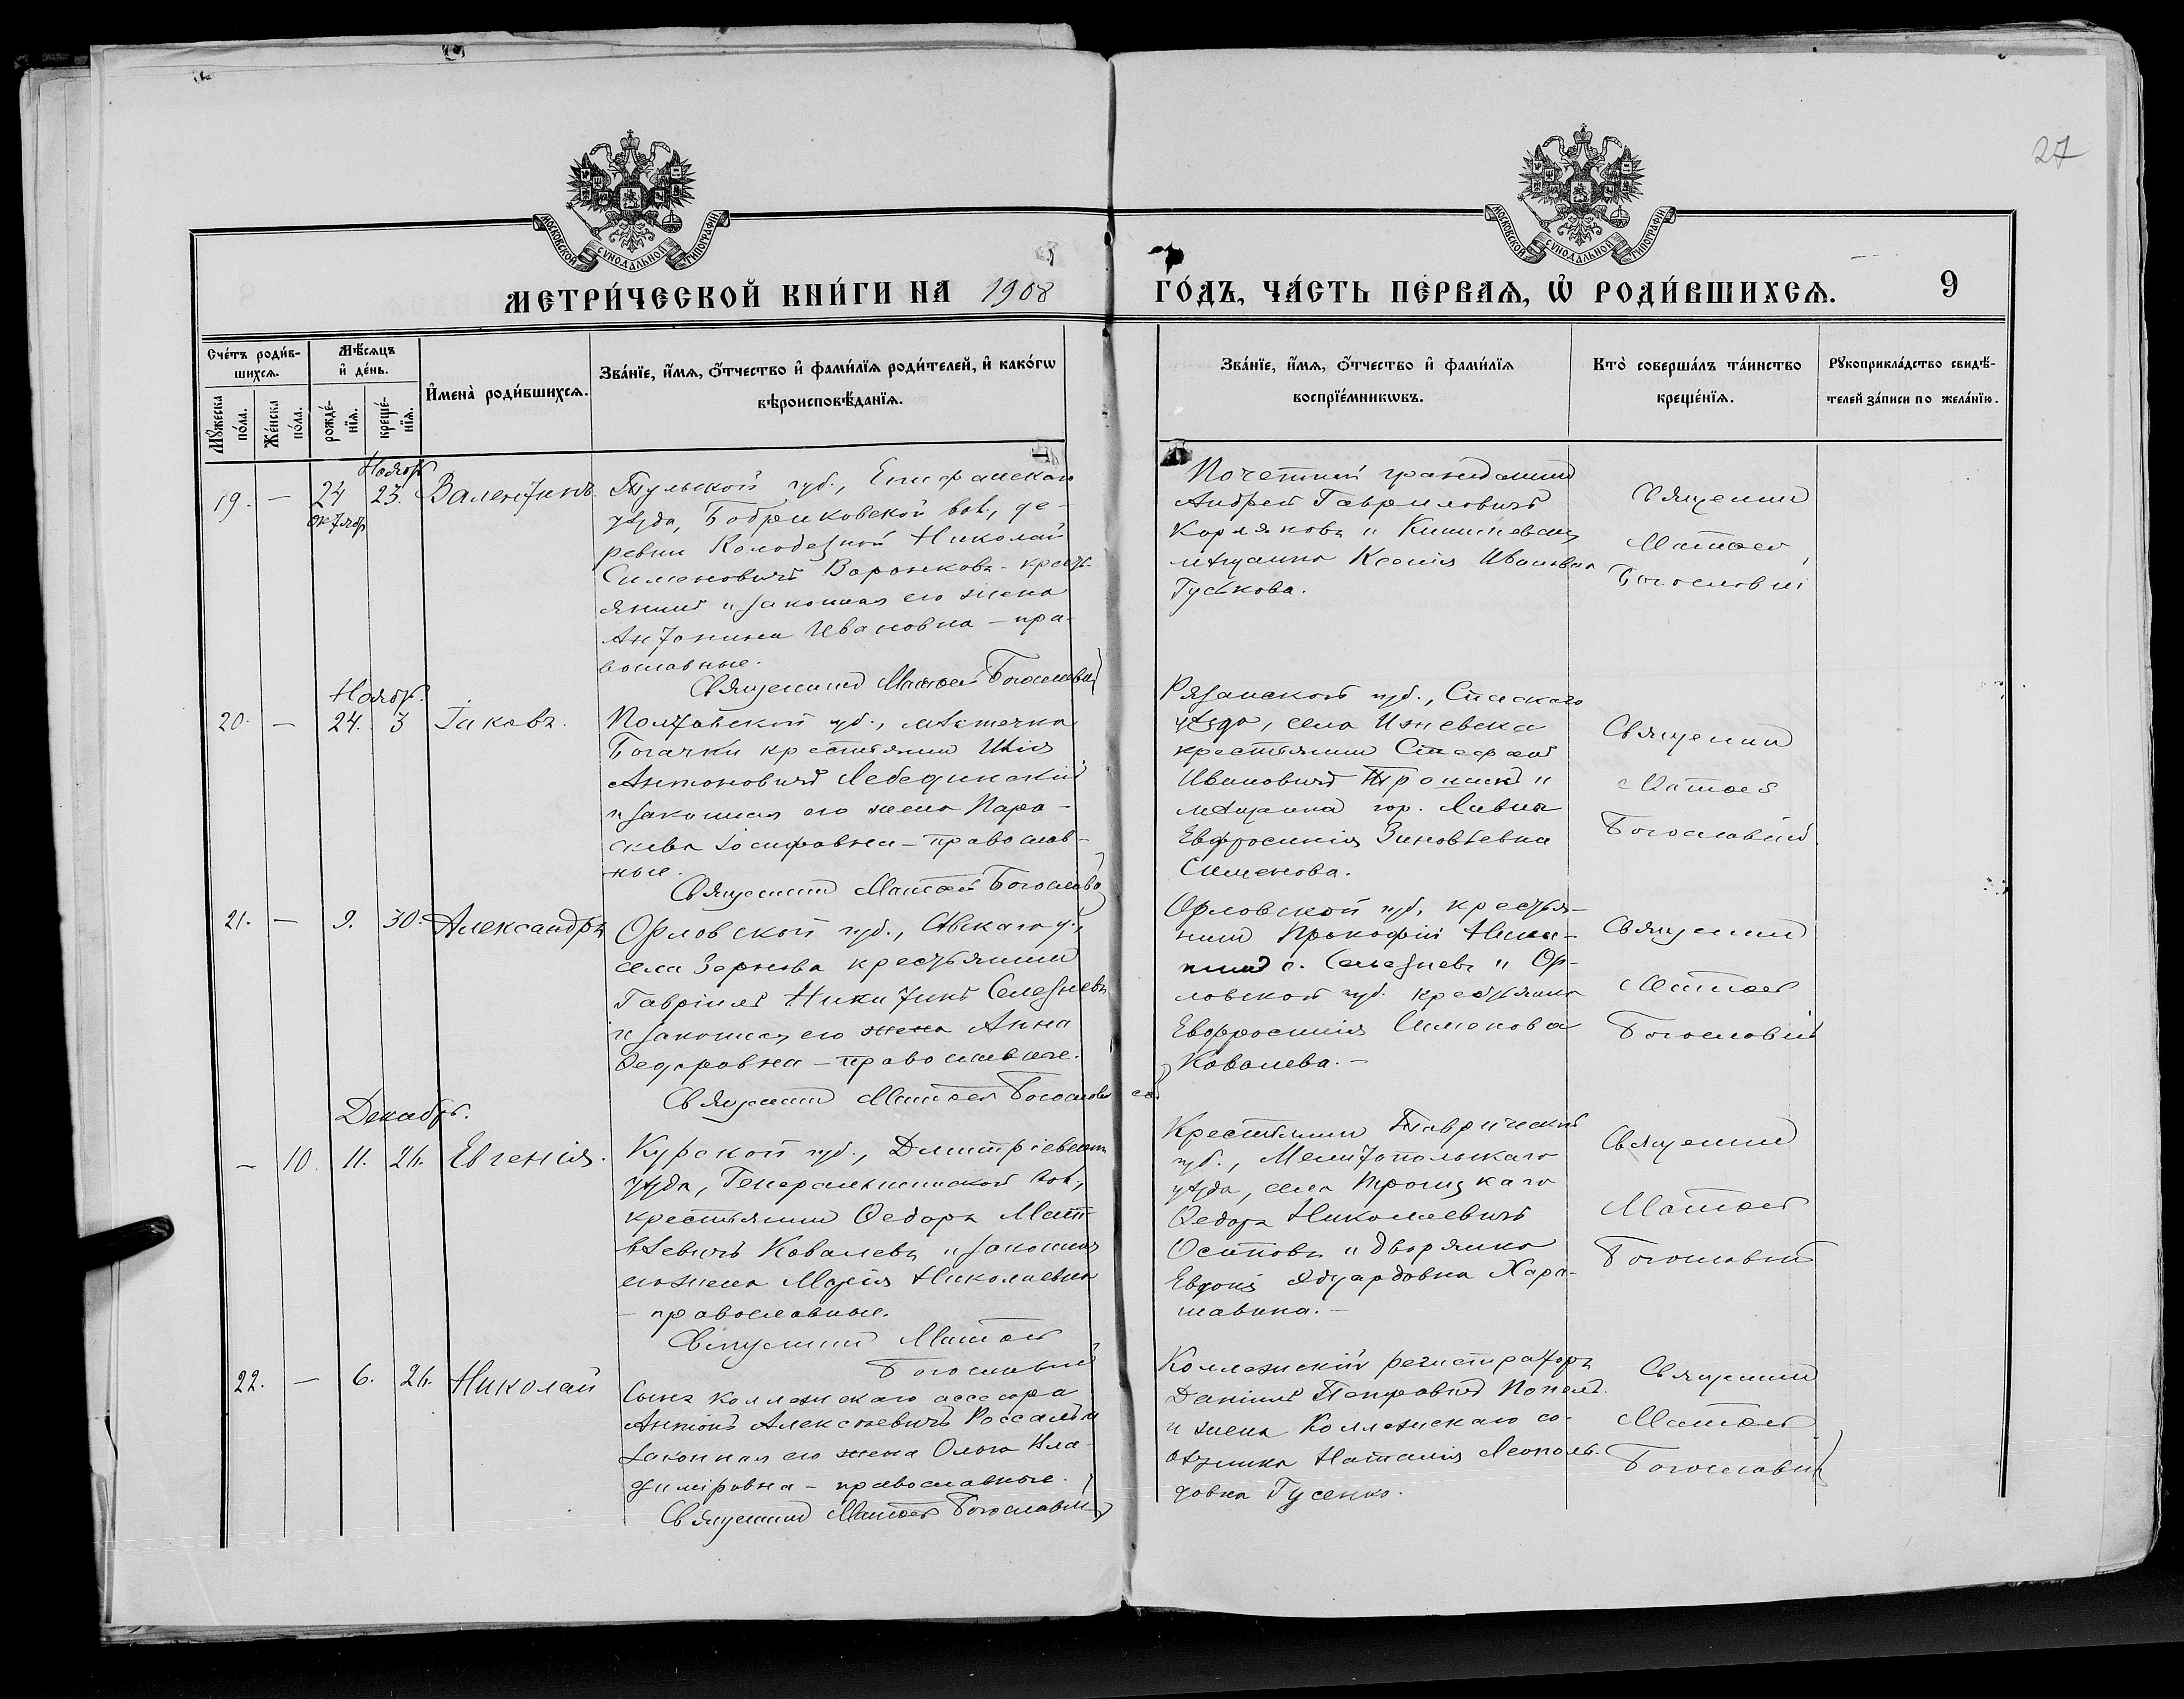 27
МОСКОВСКОЙ СѴНОДАЛЬНОЙ ТИПОГРАФІИ
МОСКОВСКОЙ СѴНОДАЛЬНОЙ ТИПОГРАФІИ
МЕТРИ́ЧЕСКОЙ КНИ́ГИ НА 1908 ГО́ДЪ, ЧА́СТЬ ПЕ́РВАѦ, Ѡ҆ РОДИ́ВШИХСѦ. 9
Сче́тъ роди́в-
шихсѧ.
Мꙋ́жеска по́ла.
Же́нска по́ла.
Мѣ́сѧцъ
и҆ де́нь.
рожде́-
нїѧ.
креще́-
нїѧ.
И҆мена̀ роди́вшихсѧ.
Зва́нїе, и҆́мѧ, ѻ҆́тчество и҆ фами́лїѧ роди́телей, и҆ како́гѡ
вѣроисповѣ́данїѧ.
Зва́нїе, и҆́мѧ, ѻ҆́тчество и҆ фами́лїѧ
воспрїе́мникѡвъ.
Кто̀ соверша́лъ та́инство
креще́нїѧ.
Рꙋкоприкла́дство свидѣ́-
телей за́писи по жела́нїю.
Ноябр.
19. — 24 23. Валентинъ.
Октябр
Тульской губ., Епифанскаго
уѣзда, Бобриковской вол., де-
ревни Колодезной Николай
Симеоновичъ Воронковъ - кресть-
янинъ и законная его жена
Антонина Ивановна - пра-
вославные.
Священникъ Матѳей Богословскій
Почетный гражданинъ
Андрей Гавриловичъ
Корляковъ и Кишиневская
мѣщанка Ксенія Ивановна
Гуськова.
Священникъ
Матѳей
Богословскій
Ноябр.
20. — 24. 3 Іаковъ.
Полтавской губ., мѣстечка
Богачки крестьянинъ Илія
Антоновичъ Лебединскій
и законная его жена Пара-
скева Іосифовна - православ-
ные.
Священникъ Матѳей Богословскій
Рязанской губ., Спаскаго
уѣзда, села Ижевска
крестьянинъ Стефанъ
Ивановичъ и
мѣщанка гор. Ливны
Евфросинія Зиновьевна
Симонова.
Священникъ
Матѳей
Богословскій
21. — 9. 30. Александръ
Орловской губ., Сѣвскаго у.,
села Зернова крестьянинъ
Гавріилъ Никитинъ Селезневъ
и законная его жена Анна
Ѳедоровна - православные.
Священникъ Матѳей Богословскій
Орловской губ. крестья-
нинъ Прокофій Ники-
Селезневъ и Ор-
ловской губ. крестьянка
Евфросинія Симонова
Ковалева. -
Священникъ
Матѳей
Богословскій
Декабрь.
— 10. 11. 26. Евгенія.
Курской губ., Дмитріевскаго
уѣзда, Генеральшинской вол.,
крестьянинъ Ѳедоръ Матѳ-
ѣевичъ Ковалевъ и законная
его жена Марія Николаевна
- православные.
Священникъ Матѳей
Богословскій
Крестьянинъ Таврической
губ., Мелитопольскаго
уѣзда, села Троицкаго
Ѳедоръ Николаевичъ
Осиповъ и дворянка
Евдокія Эдуардовна Хара-
Священникъ
Матѳей
Богословскій
22. — 6. 26. Николай
Сынъ коллежскаго ассесора
Антонъ Алексѣевичъ
законная его жена Ольга Вла-
диміровна - православные.
Священникъ Матѳей Богословскій
Коллежскій регистраторъ
Даніилъ Петровичъ Поповъ
и жена Коллежскаго со-
вѣтника Наталія Леополь-
довна Гусенко.
Священникъ
Матѳей
Богословскій